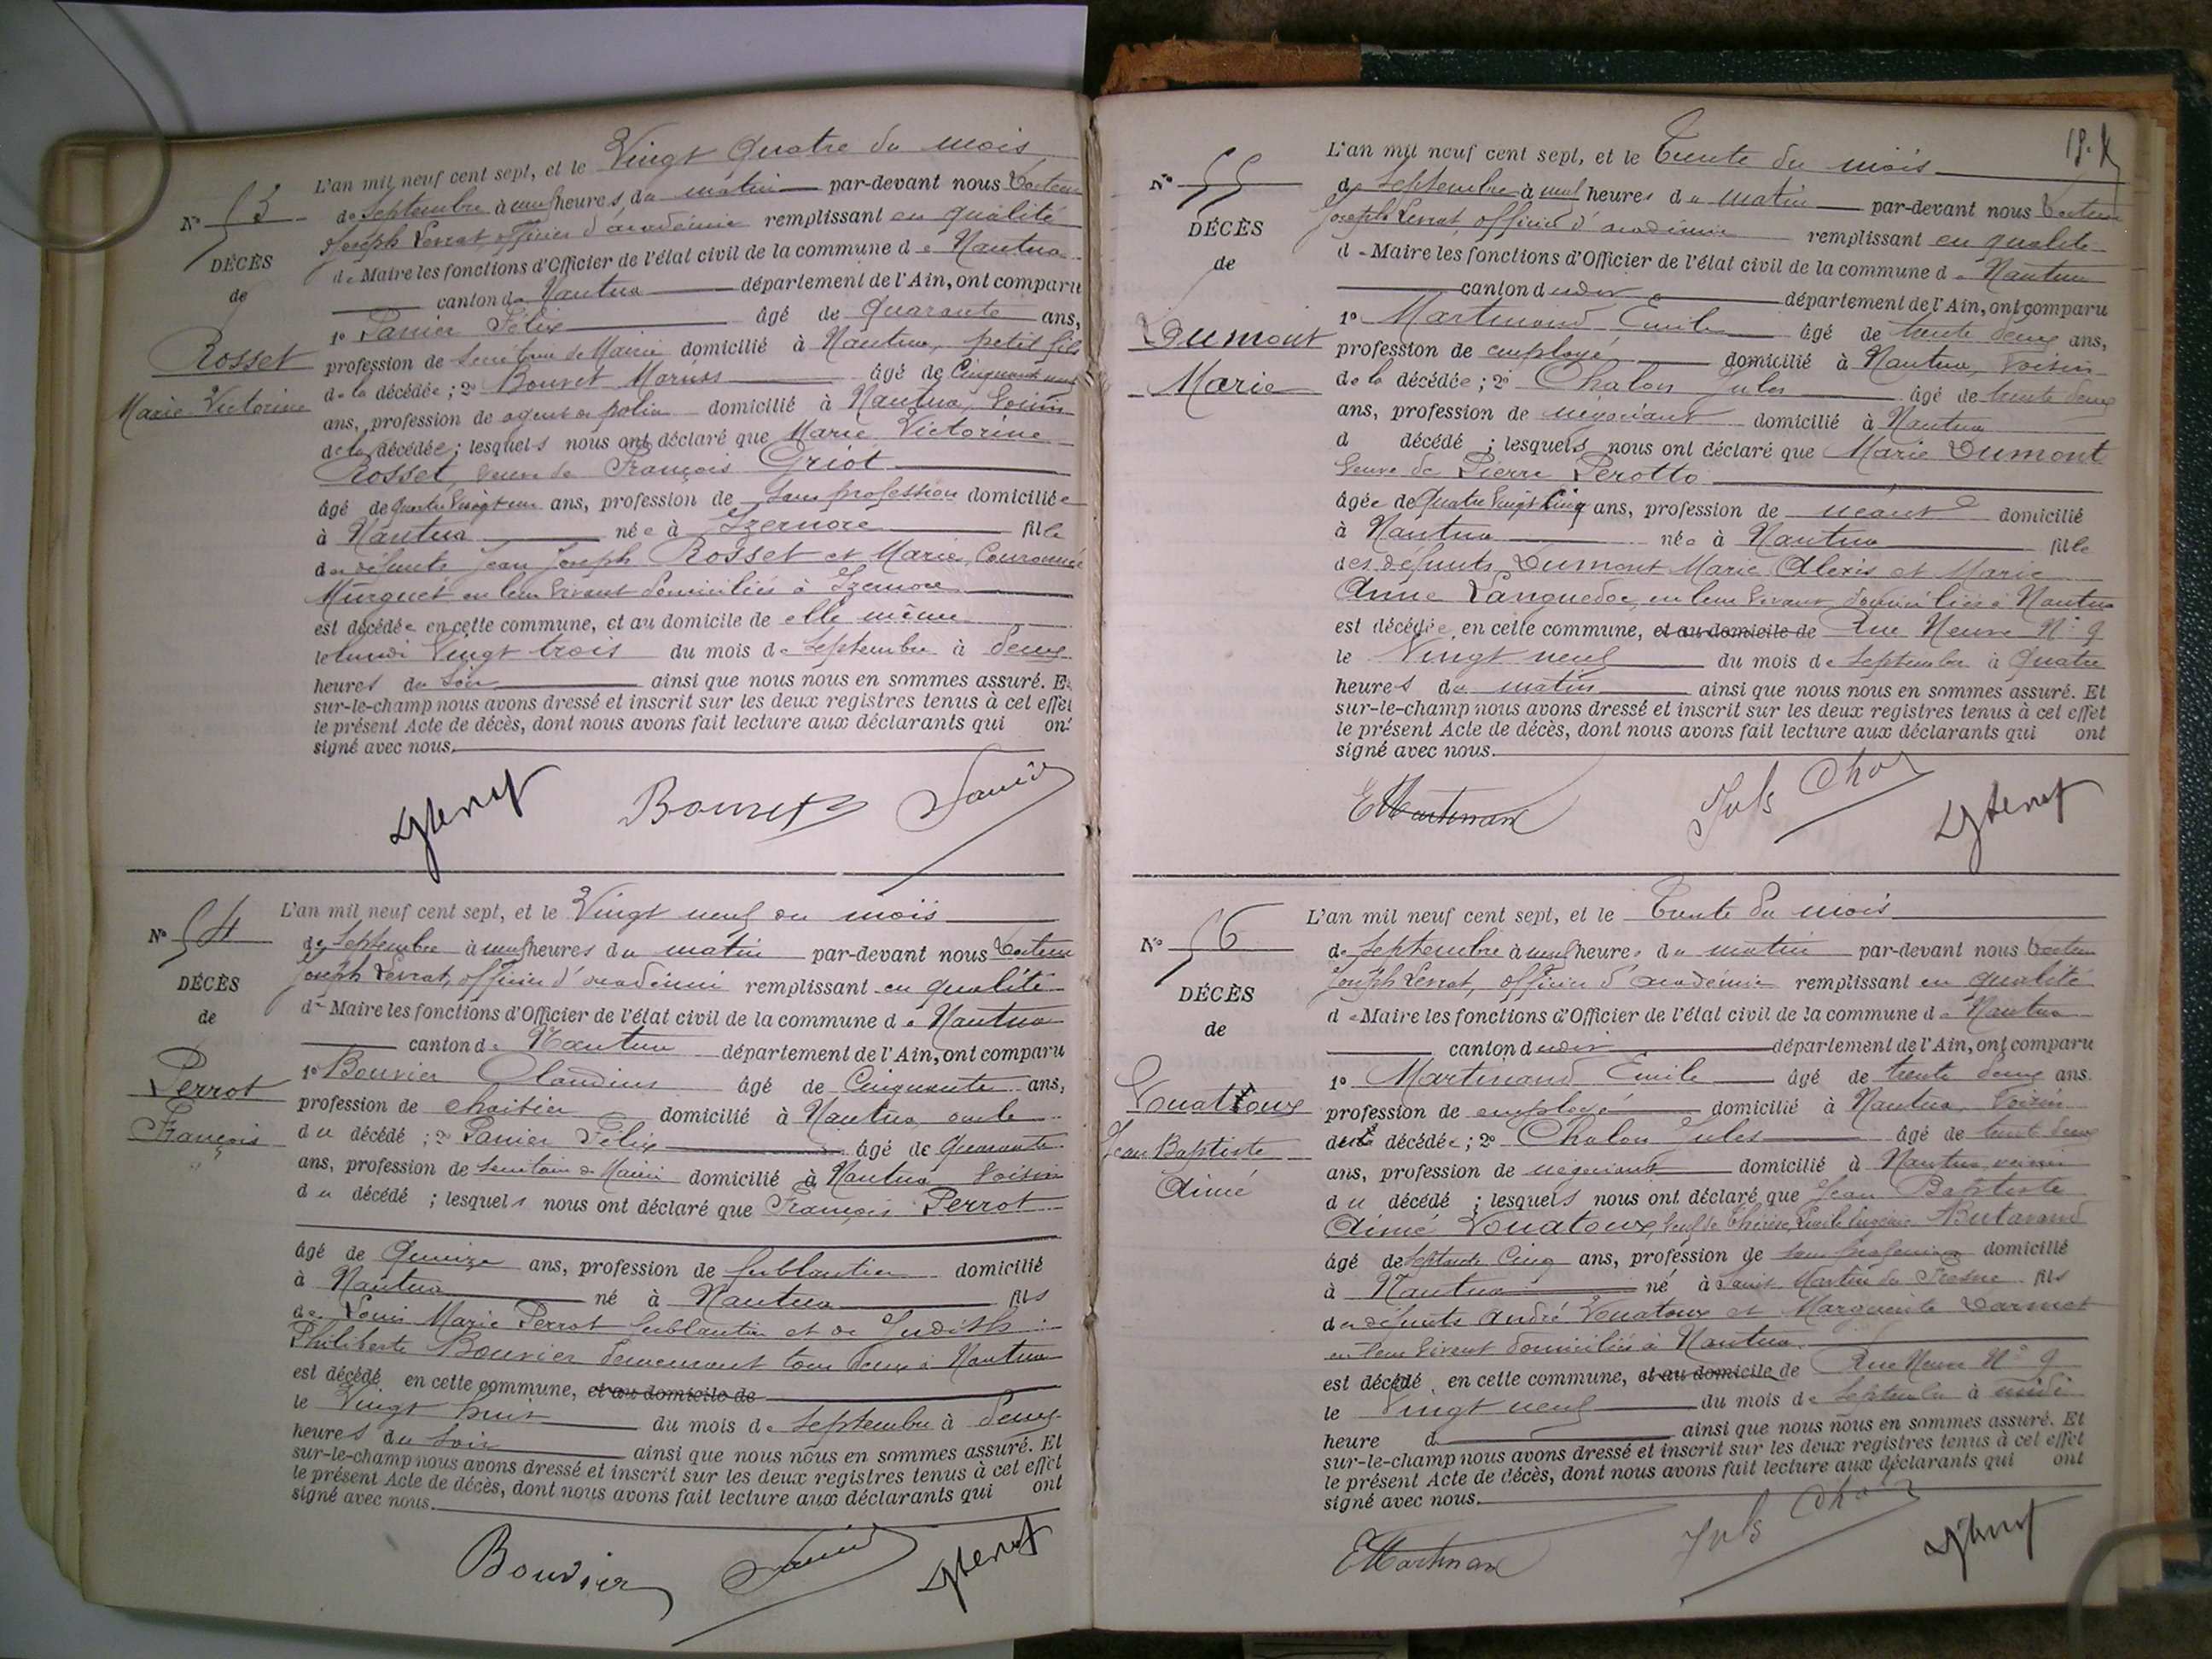 N° 53
DÉCÈS
de
Rosset
Marie Victorine
L'an mil neuf cent sept, et le Vingt Quatre du mois
de Septembre à neuf heures du matin par-devant nous Docteur
Joseph officier d'académie remplissant en qualité
de Maire les fonctions d'Officier de l'état civil de la commune de Nantua
canton de Nantua département de l'Ain, ont comparu
1° Panier Félix âgé de Quarante ans,
profession de Secrétaire de Mairie domicilié à Nantua, petit fils
de la décédée ; 2° Bouvet Marius âgé de Cinquante neuf
ans, profession de agent de police domicilié à Nantua, Voisin
de la décédée ; lesquels nous ont déclaré que Marie Victorine
Rosset, veuve de François Griot
âgé de Quatre Vingt un ans, profession de sans profession domiciliée
à Nantua née à Izernore fille
des défunts Jean Joseph Rosset et Marie Couronnée
Murguet en leur vivant domiciliés à Izernore
est décédée en cette commune, et au domicile de elle même
le lundi Vingt trois du mois de Septembre à deux
heures du soir ainsi que nous nous en sommes assuré. Et
sur-le-champ nous avons dressé et inscrit sur les deux registres tenus à cet effet
le présent Acte de décès, dont nous avons fait lecture aux déclarants qui ont
signé avec nous.
Bouvet
N° 54
DÉCÈS
de
Perrot
François
L'an mil neuf cent sept, et le Vingt neuf du mois
de Septembre à neuf heures du matin par-devant nous Docteur
Joseph officier d'académie remplissant en qualité
de Maire les fonctions d'Officier de l'état civil de la commune de Nantua
canton de Nantua département de l'Ain, ont comparu
1° Bouvier Claudius âgé de Cinquante ans,
profession de domicilié à Nantua, oncle
du décédé ; 2° Panier Félix âgé de Quarante
ans, profession de Secrétaire de Mairie domicilié à Nantua Voisin
du décédé ; lesquels nous ont déclaré que François Perrot
âgé de Quinze ans, profession de ferblantier domicilié
à Nantua né à Nantua fils
de Louis Marie Perrot ferblantier et de Judith
Philiberte Bouvier demeurant tous deux à Nantua
est décédé en cette commune, et au domicile de
le Vingt huit du mois de Septembre à deux
heures du soir ainsi que nous nous en sommes assuré. Et
sur-le-champ nous avons dressé et inscrit sur les deux registres tenus à cet effet
le présent Acte de décès, dont nous avons fait lecture aux déclarants qui ont
signé avec nous.
Bouvier
N° 55
DÉCÈS
de
Dumont
Marie
L'an mil neuf cent sept, et le Trente du mois
de Septembre à neuf heures du matin par-devant nous Docteur
Joseph officier d'académie remplissant en qualité
de Maire les fonctions d'Officier de l'état civil de la commune de Nantua
canton dudit département de l'Ain, ont comparu
1° Martinand Emile âgé de trente deux ans,
profession de employé domicilié à Nantua, Voisin
de la décédée ; 2° Chalon Jules âgé de trente deux
ans, profession de négociant domicilié à Nantua
d décédé ; lesquels nous ont déclaré que Marie Dumont
Veuve de Pierre Perotto
âgée de Quatre Vingt Cinq ans, profession de néant domicilié
à Nantua née à Nantua fille
des défunts Dumont Marie Alexis et Marie
Anne Languedoc, en leur vivant domiciliés à Nantua
est décédée en cette commune, et au domicile de Rue Neuve N° 9
le Vingt neuf du mois de Septembre à Quatre
heures du matin ainsi que nous nous en sommes assuré. Et
sur-le-champ nous avons dressé et inscrit sur les deux registres tenus à cet effet
le présent Acte de décès, dont nous avons fait lecture aux déclarants qui ont
signé avec nous.
N° 56
DÉCÈS
de
Jean Baptiste
Aimé
L'an mil neuf cent sept, et le Trente du mois
de Septembre à neuf heures du matin par-devant nous Docteur
Joseph officier d'académie remplissant en qualité
de Maire les fonctions d'Officier de l'état civil de la commune de Nantua
canton dudit département de l'Ain, ont comparu
1° Martinand Emile âgé de trente deux ans.
profession de employé domicilié à Nantua, Voisin
décédée ; 2° Chalon Jules âgé de trente deux
ans, profession de négociant domicilié à Nantua, voisin
du décédé ; lesquels nous ont déclaré que Jean Baptiste
Aimé veuf de Thérèse
âgé de Septante Cinq ans, profession de sans profession domicilié
à Nantua né à Saint Martin du Fresne fils
des défunts André et Marguerite
en leur vivant domiciliés à Nantua
est décédé en cette commune, et au domicile de Rue Neuve N° 9
le Vingt neuf du mois de Septembre à midi
heure d ainsi que nous nous en sommes assuré. Et
sur-le-champ nous avons dressé et inscrit sur les deux registres tenus à cet effet
le présent Acte de décès, dont nous avons fait lecture aux déclarants qui ont
signé avec nous.